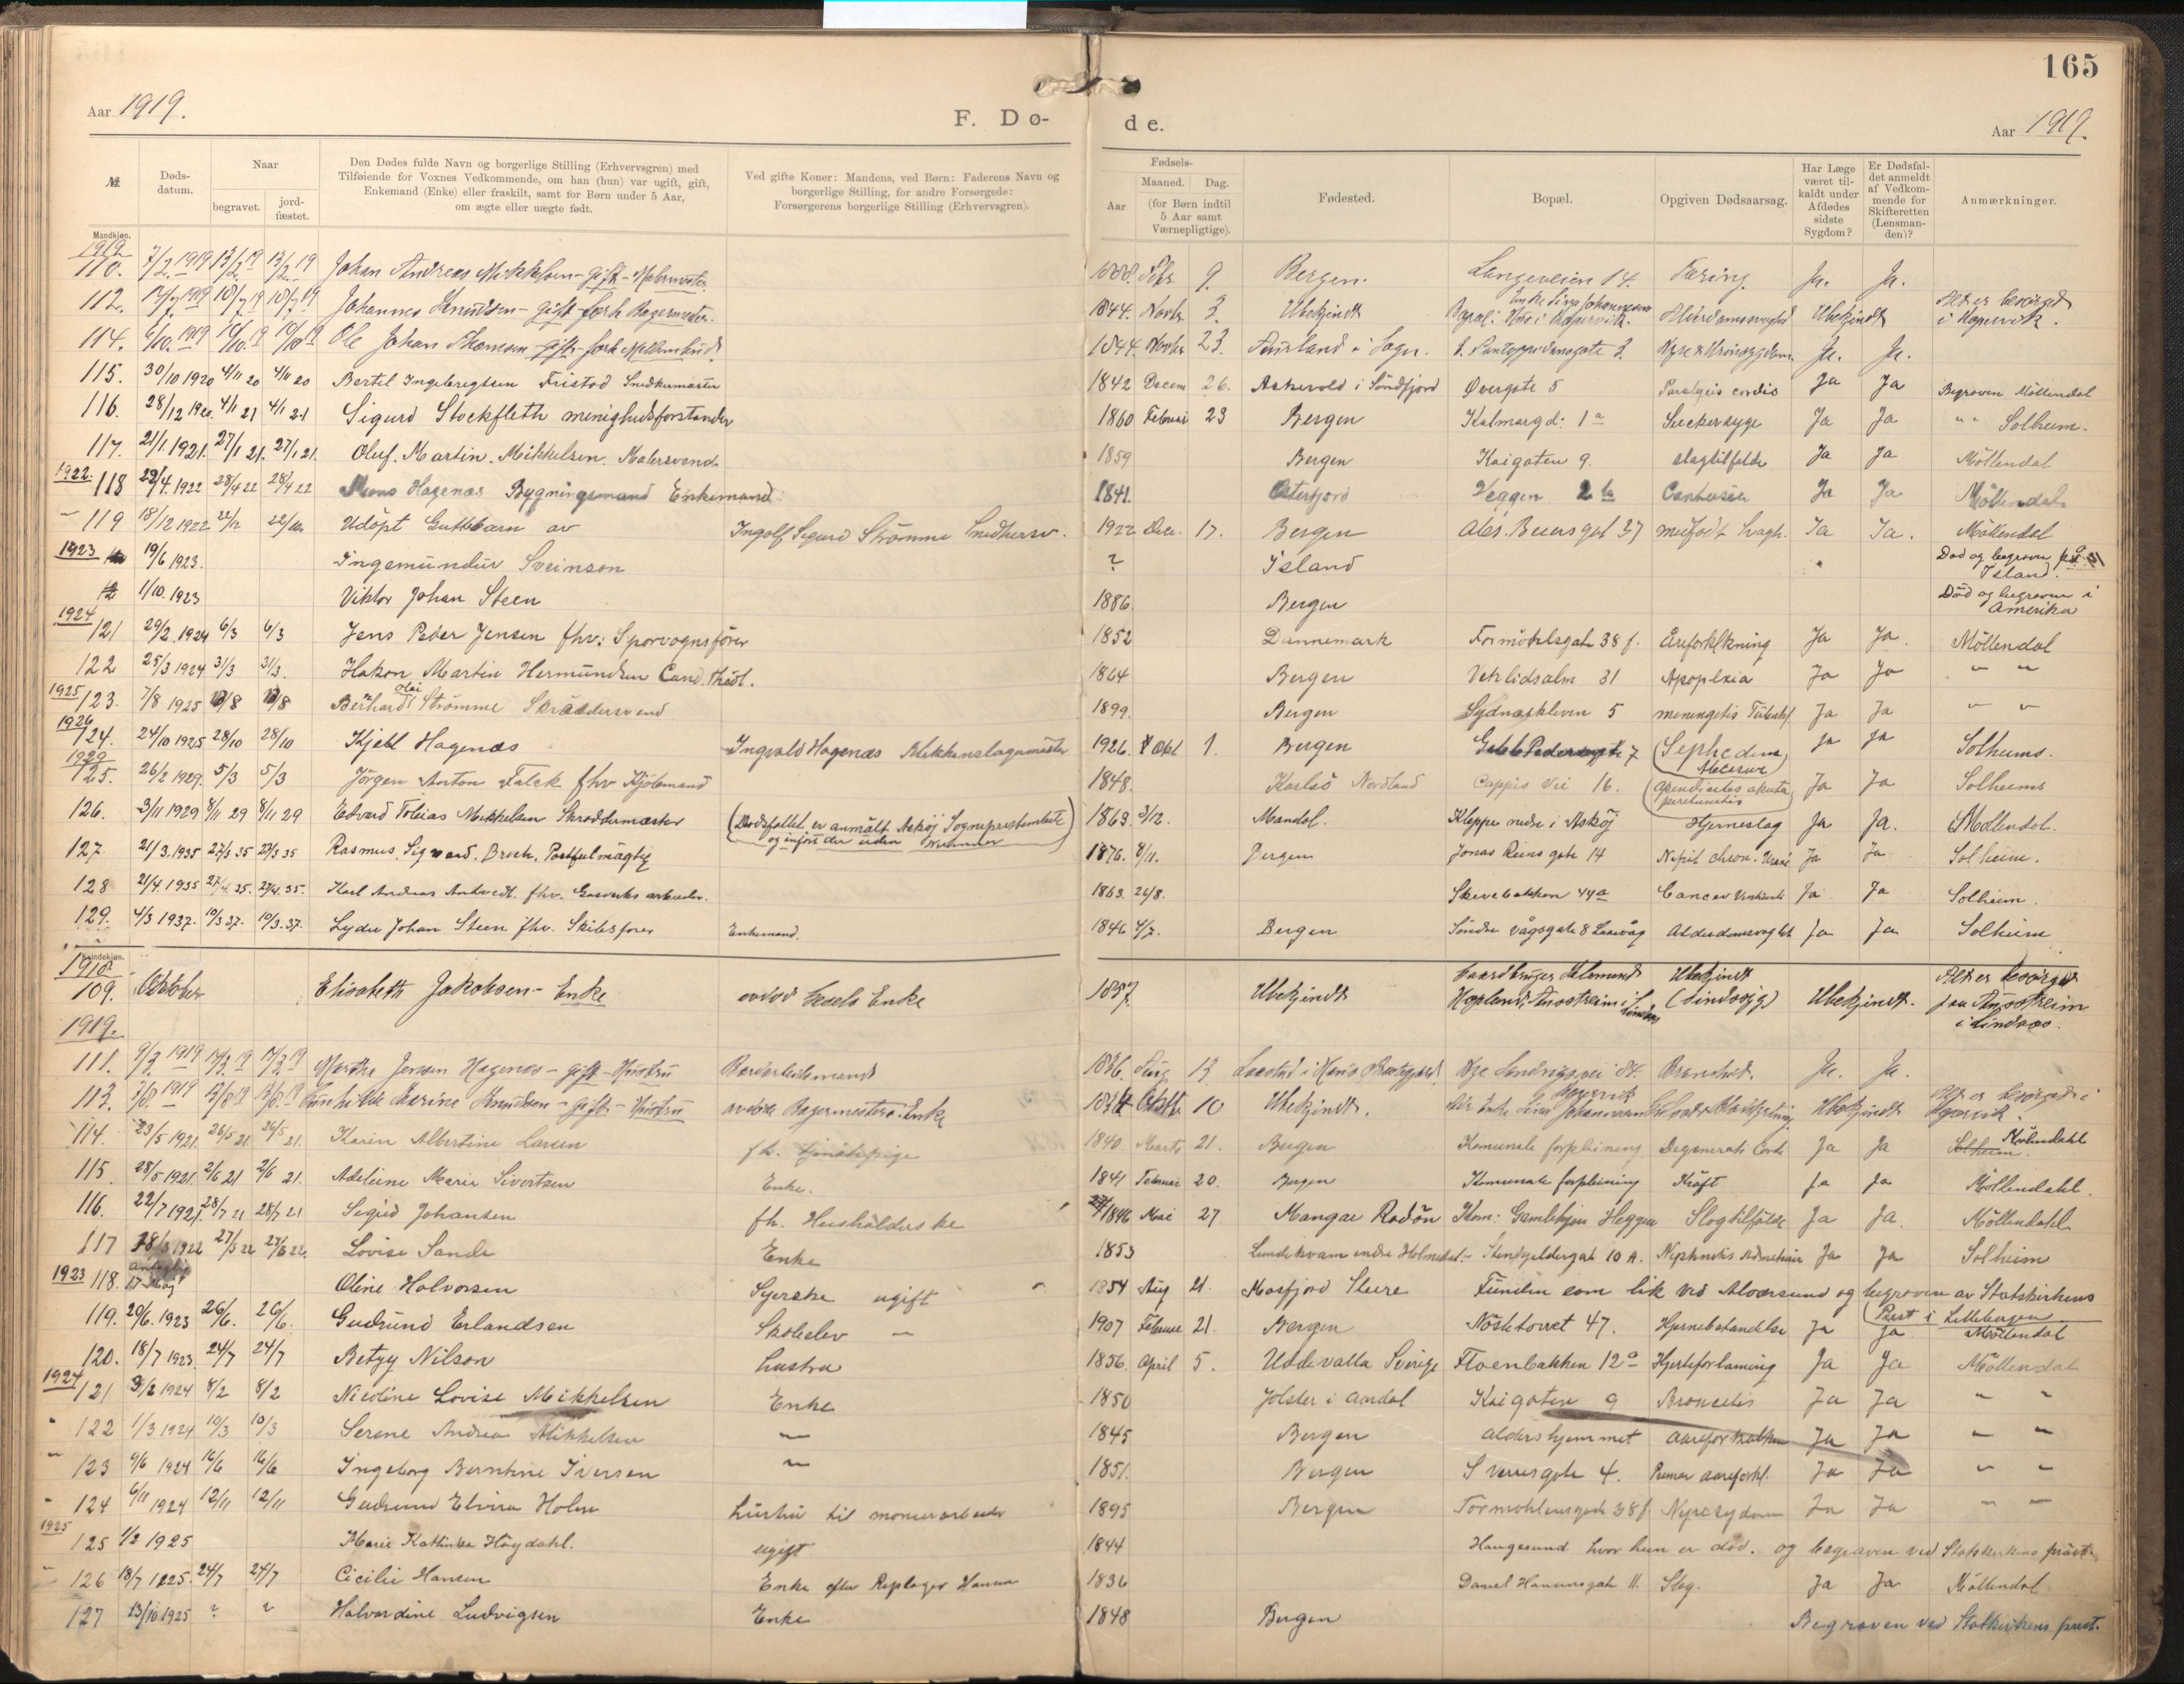 165
Aar 1919.
F. Dø-
de.
Aar 1919.
№
Døds-
datum.
Naar
begravet.
jord-
fæstet.
Den Dødes fulde Navn og borgerlige Stilling (Erhvervsgren) med
Tilføiende for Voxnes Vedkommende, om han (hun) var ugift, gift,
Enkemand (Enke) eller fraskilt, samt for Børn under 5 Aar,
om ægte eller uægte født.
Ved gifte Koner: Mandens, ved Børn: Faderens Navn og
borgerlige Stilling, for andre Forsørgede:
Forsørgerens borgerlige Stilling (Erhvervsgren).
Fødsels-
Aar
Maaned.
Dag.
(for Børn indtil
5 Aar samt
Værnepligtige).
Fødested.
Bopæl.
Opgiven Dødsaarsag.
Har Læge
været til-
kaldt under
Afdødes
sidste
Sygdom?
Er Dødsfal-
det anmeldt
af Vedkom-
mende for
Skifteretten
(Lensman-
den)?
Anmærkninger.
Mandkjøn.
1919
110. 7/2 1919 13/2 19 13/2 19 Johan Andreas Mikkelsen - gift - Malermester. 1888. Febr 9. Bergen. Langeveien 14. Tæring. Ja. Ja.
112. 14/7 1919 18/7 19 18/7 19 Johannes Knudsen - gift - forh. Bagermester. 1844. Novbr 3. Ubekjendt Alderdomssvaghed Ubekjendt Alt er besørget i Kopervik.
114. 6/10. 1919 10/10. 19 10/10 19 Ole Johan Thomsen - gift - forh. 1844. Novbr 23. Aurland i Sogn. Ja. Ja.
115. 30/10 1920 4/11 20 4/11 20 Bertil Ingebrigtsen Fristad Snedkermester 1842 Decem 26. Askevold i Söndfjord Øvregate 5 Paralysis cordis Ja Ja Begraven Möllendal
116. 28/12 1920. 4/1 21 4/1 21 Sigurd Stockfleth menighedsforstander 1860 Februar 23 Bergen Kalmargd: 1a Suckersyge Ja Ja " " Solheim.
117. 21/1 1921. 27/1 21. 27/1 21. Oluf. Martin. Mikkelsen. Malersvend. 1859 Bergen Kaigaten 9. slagtilfelde Ja Ja Möllendal
1922. 118 22/4. 1922 28/4 22 28/4 22 Mons Hagenæs Bygningsmand Enkemand. 1841. Osterfjord Heggen Ja Ja Möllendal
" 119 18/12 1922 22/12 22/12 Udöpt Guttebarn av Ingolf Sigurd Strömme Snedkersv. 1922 Dec. 17. Bergen medfødt svagh. Ja Ja. Möllendal
1923 19/6 1923. Ingemundur Sveinson ? Island Död og begraven på Island.
1/10. 1923 Viktor Johan Steen 1886 Bergen Död og begraven i Amerika
1924
121 29/2. 1924 6/3 6/3 Jens Peder Jensen fhv: Sporvognsförer 1852 Dannemark Årefork­lkning Ja Ja. Möllendal
122 25/3 1924 31/3 31/3. Hakon Martin Hermundsen Cand. theol. 1864 Bergen Vetrlidsalm 31 Apoplexia Ja Ja " "
1925 123. 7/8 1925 13/8 13/8 Bernhard Olai Strömme Skræddersvend 1899. Bergen Sydnæskleven 5 meningitis Ja Ja " "
1926
124. 24/10 1925 28/10 28/10 Kjell Hagenæs Ingvald Hagenæs Blikkenslagermester 1926. Okt 1. Bergen Ja Ja Solheims.
1929
125. 26/2 1929. 5/3 5/3 Jörgen Anton Falck fhv 1848. Karlsö Nordland Cappes Vei 16. (apendicites akuta peritonitis) Ja Ja Solheims
126. 3/11 1929 8/11 29 8/11 29 Edvard Tobias Mikkelsen Skreddermester (Dödsfallet er anmält Asköj Sogneprestembete og infört der uden Nummer) 1863 3/12. Mandal. Kleppe nedre i Asköj Hjerneslag Ja Ja. Möllendal.
127 21/3. 1935 27/3 35 27/3 35 Rasmus. Sigvard. Broch. Postfulmägtig 1876. 8/11. Bergen Jonas Reins gate 14 Ja Ja Solheim.
128 21/4. 1935 27/4. 35. 27/4. 35. Karl Andreas fhv. Gasverks arbeider. 1863. 26/8. Skivebakken 44a Cancer Ja Ja Solheim.
129. 4/3 1937. 10/3 37. 10/3. 37. Lyder Johan Steen fhv. Skibsförer Enkemand. 1846 4/7. Bergen Söndre Vågsgate 8 Laxevåg Alderdomssvaghet Ja Ja Solheim
Kvindekjøn.
1918
109. Oktober Elisabeth Jakobsen - Enke 1837. Ubekjendt Ubekjendt (Sindssyg) Ubekjendt. Alt er besørget fra i Lindaas.
1919.
111. 9/3 1919 14/3 19 14/3 19 Martha Jensen Hagenæs - gift - Hustru 1836. Aug 13. Ja. Ja.
113. 7/8. 1919 12/8 19 12/8. 19 Gunhilde Karine Knudsen - gift - Hustru avdøde Bagermesters Enke 1834 Oktbr 10 Ubekjendt. Ubekjendt Alt er besørget i Kopervik.
114. 23/5 1921. 26/5 21 26/5 21. Karen Albertine Larsen fh. tjenestepige 1840 Marts 21. Bergen Komunale forpleining Degenerati Cordis Ja Ja Solheim. Möllendahl
115. 28/5 1921. 2/6 21 2/6 21. Adeleine Marie Sivertsen Enke. 1841 Februar 20. Bergen Komunale forpleining Kräft Ja Ja Möllendahl.
116. 22/7 1921. 28/7 21 28/7 21 Sigrid Johansen fh. Husholderske 1846 Mai 27. Mangae Radön Kom: Gamlehjem Heggen Slagtilfälde Ja Ja. Möllendahl
117 18/3 1922 27/3 22 Lovise Sande Enke 1853 Ja Ja Solheim
1923 118. antagelig 17 Maj Oline Halvorsen Syerske ugift 1854 Aug 21. Masfjord Funden som lik ved Alversund og begraven av Statskirkens Prest i Lillebergen
119. 20/6. 1923 26/6. 26/6. Gudrund Erlandsen Skoleelev " 1907 Februar 21. Bergen Nöstetorvet 47. Hjernebetændelse Ja Ja Möllendal
120. 18/7 1923 24/7 24/7 Betzy Nilson hustru 1856. April 5. Uddevalla Sverige Floenbakken 12a Hjerteforlamning Ja Ja Möllendal
1924
121 3/2 1924 8/2 8/2 Nicoline Lovise Mikkelsen Enke 1850 Jolster i Kaigaten 9 Broncitis Ja Ja " "
" 122 1/3 1924 10/3 10/3 Serene Andrea Mikkelsen " 1845 Bergen Aldershjemmet Ja Ja " "
" 123 9/6 1924 16/6 16/6 Ingeborg Berntine Iversen " 1851. Bergen Sverresgate 4. Ja Ja " "
" 124 6/11 1924 12/11 12/11 Gudrund Elvira Holm hustru til 1895 Bergen Nyresygdom Ja Ja " "
1925
125 1/2 1925 Marie Kathinka Höydahl. ugift 1844 Haugesund hvor hun er död. og begraven ved Statskirkens präst.
" 126 18/7 1925. 24/7 24/7 Cicilie Hansen Enke efter Repslager Hansen 1836 Daniel Hansensgate 11. Slag. Ja Ja Möllendal
127 13/10 1925 ? ? Halvardine Ludvigsen Enke 1848 Bergen Begraven ved Statkirkens prest.